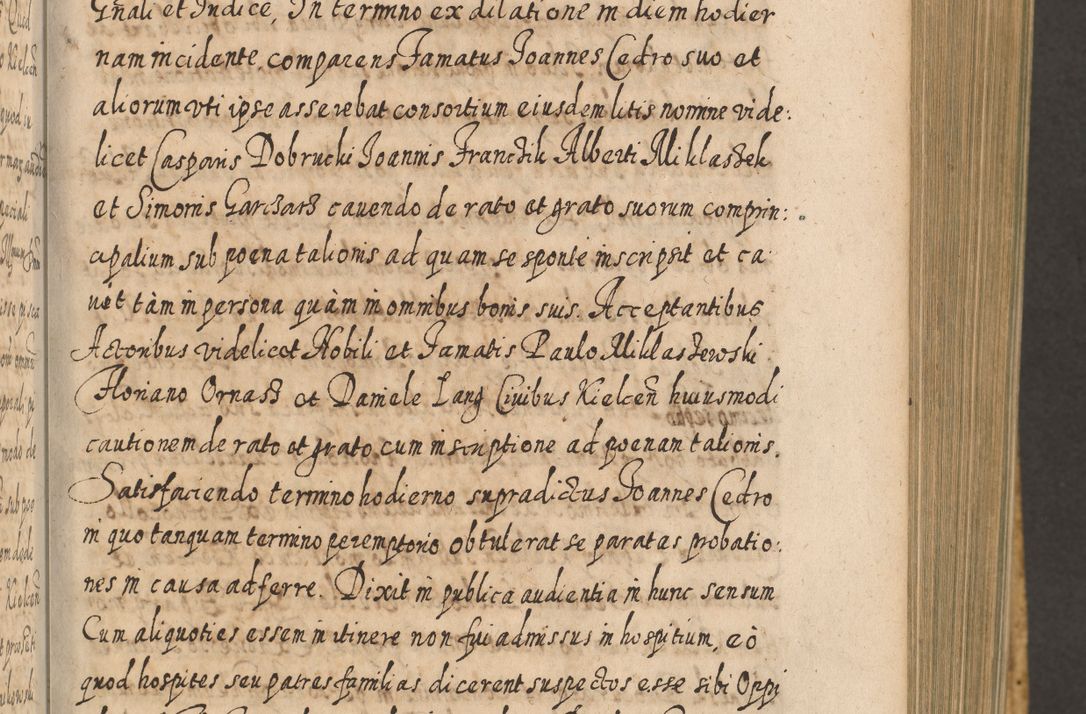 Gnali et Indice, In termino ex dilatione in diem hodier
nam incidente, comparens Famatus Joannes Cedro suo et
aliorum vti ipse asserebat consortium eiusdem litis nomine vide:
licet Casparis Dobrucki Joannis Franczik Alberti Miklaszek
et Simonis Garczarz cauendo de rato et grato suorum comprin:
cipalium sub poena talionis ad quam se sponte inscripsit et ca
uet tàm in persona quàm in omnibus bonis suis. Acceptantibus
Actoribus videlicet Nobili et Famatis Paulo Miklaszewski
Floriano Ornasz et Daniele Lang Ciuibus Kielcen̄ huiusmodi
cautionem de rato et grato cum inscriptione ad poenam talionis.
Satisfaciendo termino hodierno supradictus Joannes Cedro
in quo tanquam termino peremptorio obtulerat se paratas probatio:
nes in causa adferre. Dixit in publica audientia in hunc sensum
Cum aliquoties essem in itinere non fui admissus in hospitium, eò
quod hospites seu patres familias dicerent suspectos esse sibi Oppi